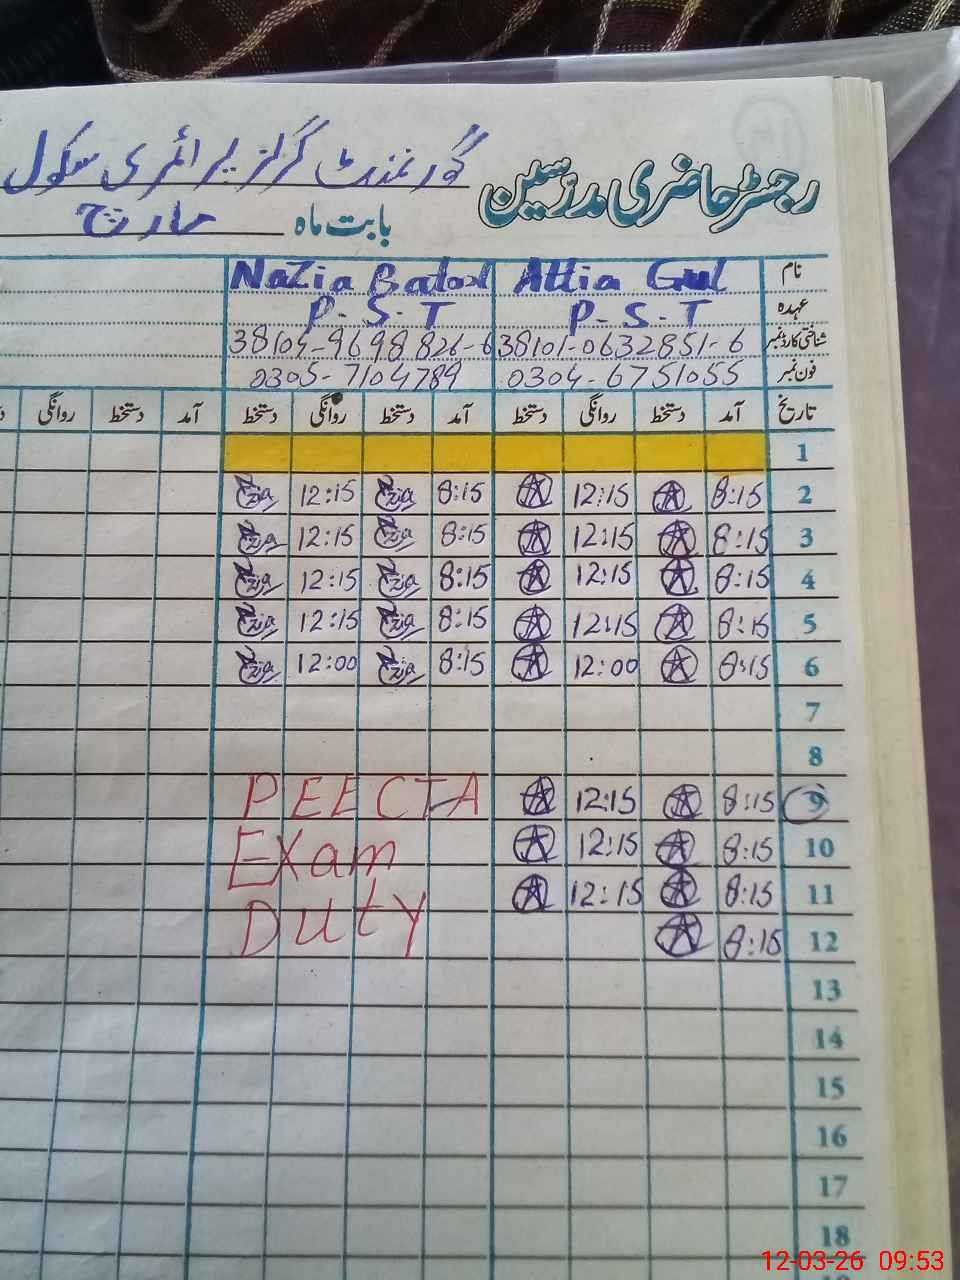 گورنمنٹ گرلز پرائمری سکول
رجسٹر حاضری مدرسین
بابت ماہ مارچ
نام Attia Gul Nazia Batool
عہدہ P-S-T P-S-T
شناختی کارڈ نمبر 38101-0632851-6 38104-9698826-6
فون نمبر 0304-6751055 0305-7104789
تاریخ آمد دستخط روانگی دستخط آمد دستخط روانگی دستخط آمد دستخط روانگی
1
2 8:15 12:15 8:15 Nazia 12:15 Nazia
3 8:15 12:15 8:15 Nazia 12:15 Nazia
4 8:15 12:15 8:15 Nazia 12:15 Nazia
5 8:15 12:15 8:15 Nazia 12:15 Nazia
6 8:15 12:00 8:15 Nazia 12:00 Nazia
7
8
9 8:15 12:15 PEECTA
10 8:15 12:15 Exam
11 8:15 12:15
12 8:15 Duty
13
14
15
16
17
18
12-03-26 09:53